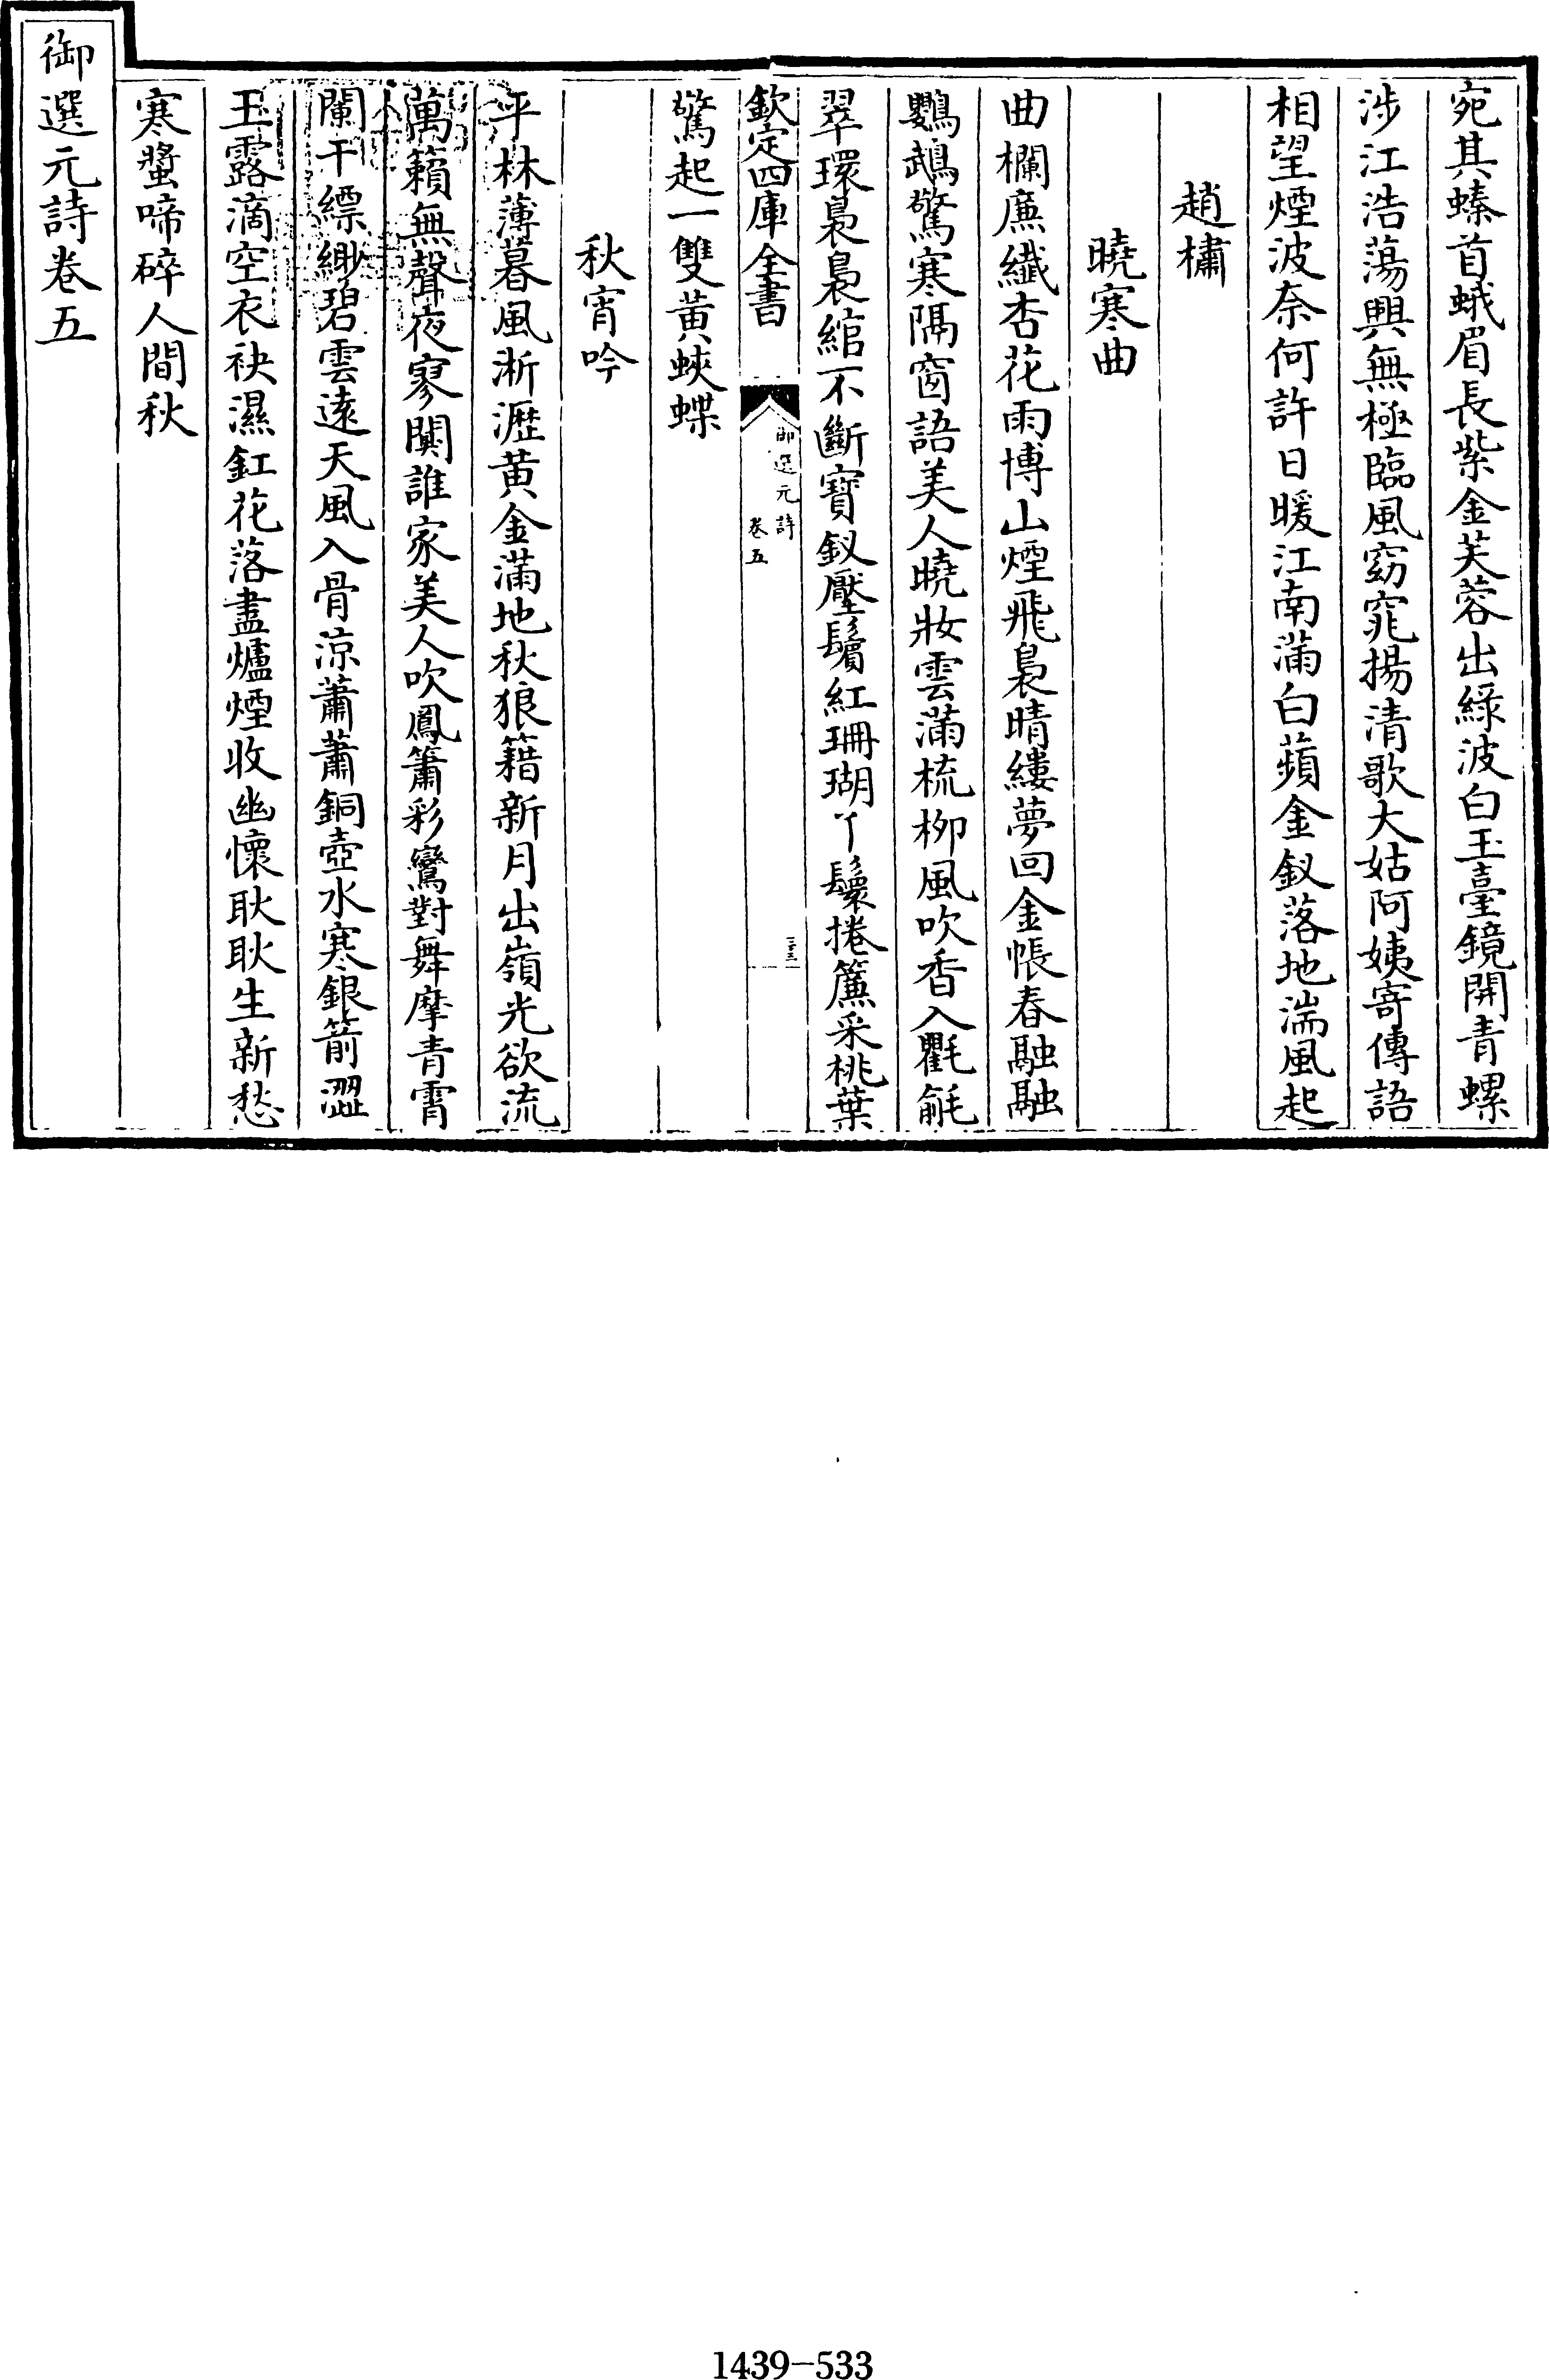 宛其螓首蛾眉長紫金芙蓉出綠波白玉臺鏡開青螺
涉江浩蕩興無極臨風窈窕揚清歌大姑阿姨寄傳語
相望煙波奈何許日暖江南滿白蘋金釵落地湍風起
趙櫹
曉寒曲
曲欄廉纖杏花雨博山煙飛裊晴縷夢回金帳春融融
鸚鵡驚寒隔窗語美人曉妝雲滿梳柳風吹香入氍毹
翠環裊裊綰不斷寶釵壓鬢紅珊瑚丫鬟捲簾采桃葉
欽定四庫全書
御選元詩
卷五
三十三
驚起一雙黃蛺蝶
秋宵吟
平林薄暮風淅瀝黃金滿地秋狼籍新月出嶺光欲流
萬籟無聲夜寥闃誰家美人吹鳳簫彩鸞對舞摩青霄
闌干縹緲碧雲遠天風入骨涼蕭蕭銅壺水寒銀箭澀
玉露滴空衣袂濕釭花落盡爐煙收幽懷耿耿生新愁
寒螿啼碎人間秋
御選元詩卷五
1439-533